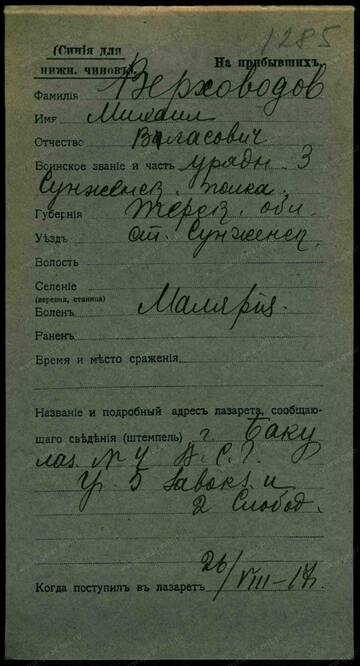 1285
(Синія для
нижн. чиновъ).
На прибывшихъ
Фамилія Верховодов
Имя Михаил
Отчество Власович
Воинское званіе и часть урядн. 3
Сунженск. полка.
Губернія Терск. обл.
Уѣздъ ст. Сунженск.
Волость
Селеніе
(деревня, станица)
Боленъ Малярія.
Раненъ
Время и мѣсто сраженія
Названіе и подробный адресъ лазарета, сообщаю-
щаго свѣдѣнія (штемпель) г. Баку
лаз. № 4 В. С. Г.
Уг. 5 Завокз. и
2 Слобод.
26/VIII-17г.
Когда поступилъ въ лазаретъ